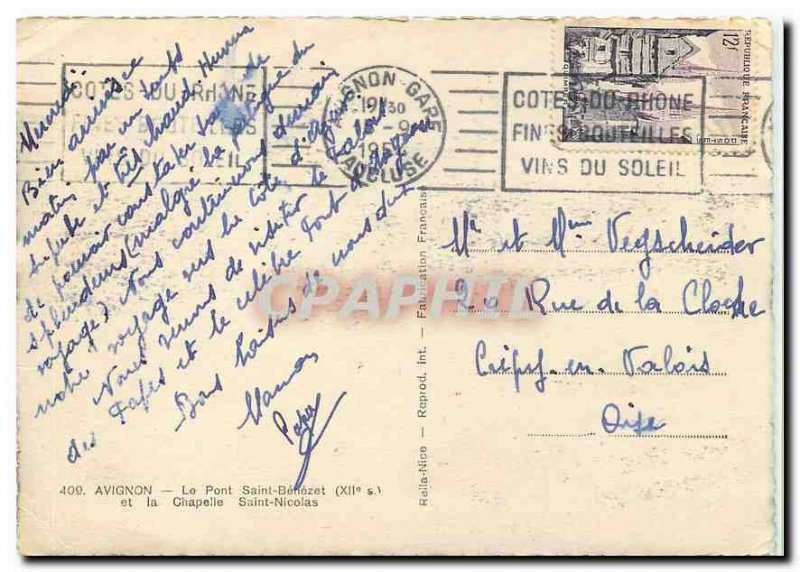 Bien arrivées ce
matin par un temps
superbe et très chaud. Heureux
de pouvoir constater tant de
splendeurs (malgré la fatigue du
voyage) Nous continuerons demain
notre voyage sur la côte d'Azur
Nous venons de visiter le Palais
des Papes et le célèbre Pont d'Avignon
Bons baisers de nous deux
Maman
Papa
409. AVIGNON — Le Pont Saint-Bénézet (XIIe s.)
et la Chapelle Saint-Nicolas
Rella-Nice — Reprod. int. — Fabrication Française
COTES DU RHONE
FINES BOUTEILLES
VINS DU SOLEIL
AVIGNON GARE
19H30
VAUCLUSE
COTES DU RHONE
FINES BOUTEILLES
VINS DU SOLEIL
12F
REPUBLIQUE FRANCAISE
Mr et Mme Vegscheider
20 Rue de la Cloche
Crépy-en-Valois
Oise
CPAPHIL